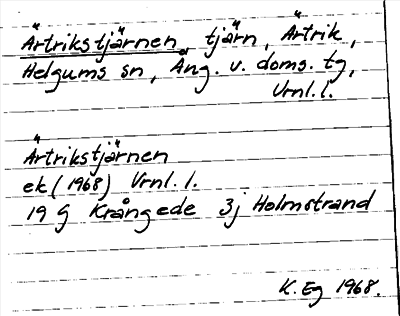 Ärtrikstjärnen tjärn, Ärtrik,
Helgums sn, Ång. v. doms. tg,
Vrnl.l.
Ärtrikstjärnen
ek (1968) Vrnl. l.
19 G Krångede 3j Holmstrand
K. Eg 1968.